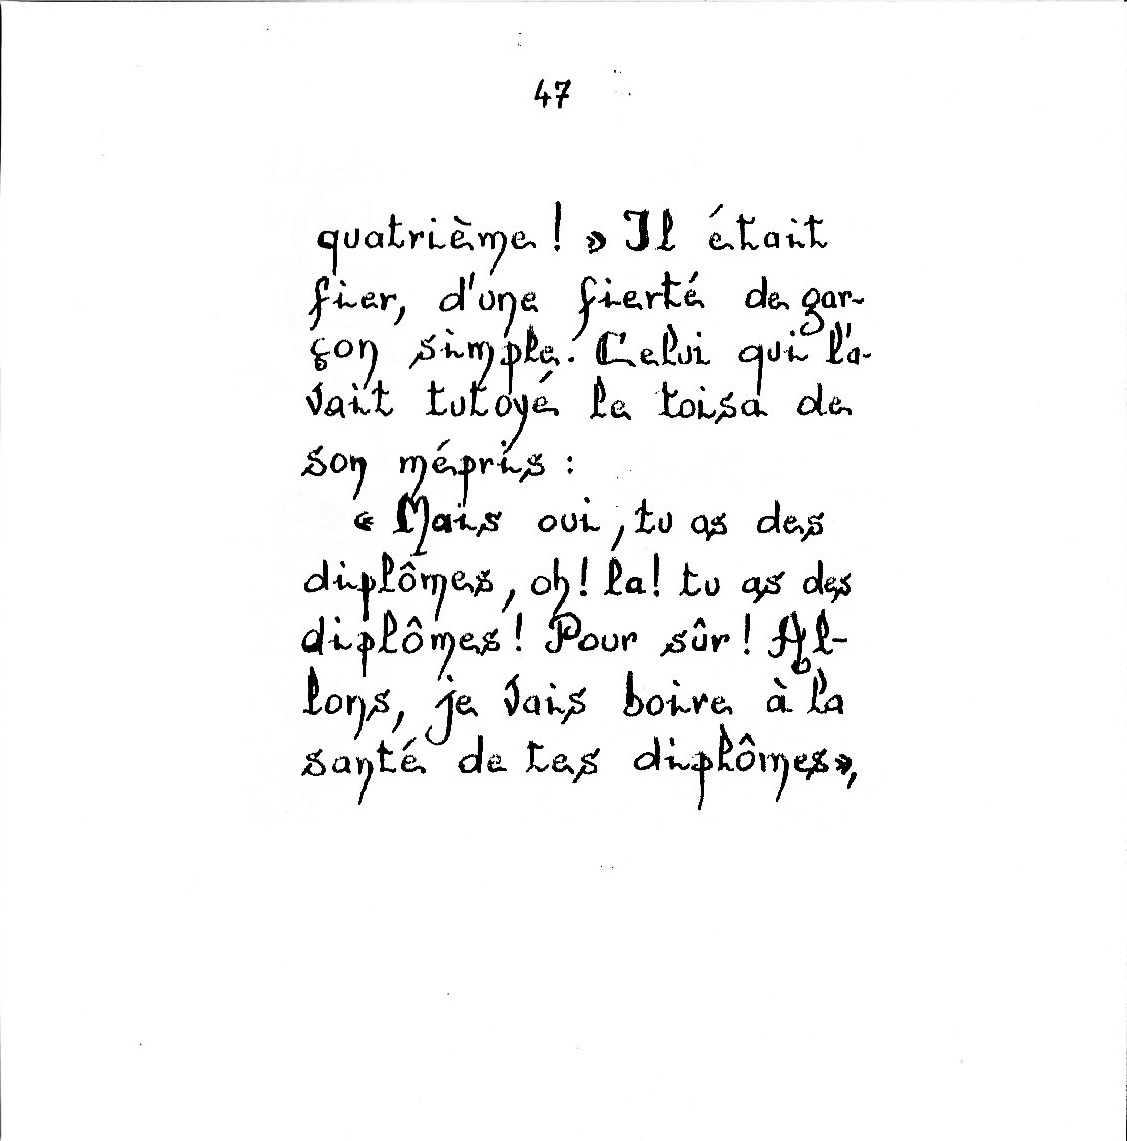 47
quatrième ! » Il était
fier, d'une fierté de gar-
çon simple. Celui qui l'a-
vait tutoyé le toisa de
son mépris :
« Mais oui, tu as des
diplômes, oh! la! tu as des
diplômes! Pour sûr! Al-
lons, je vais boire à la
santé de tes diplômes»,